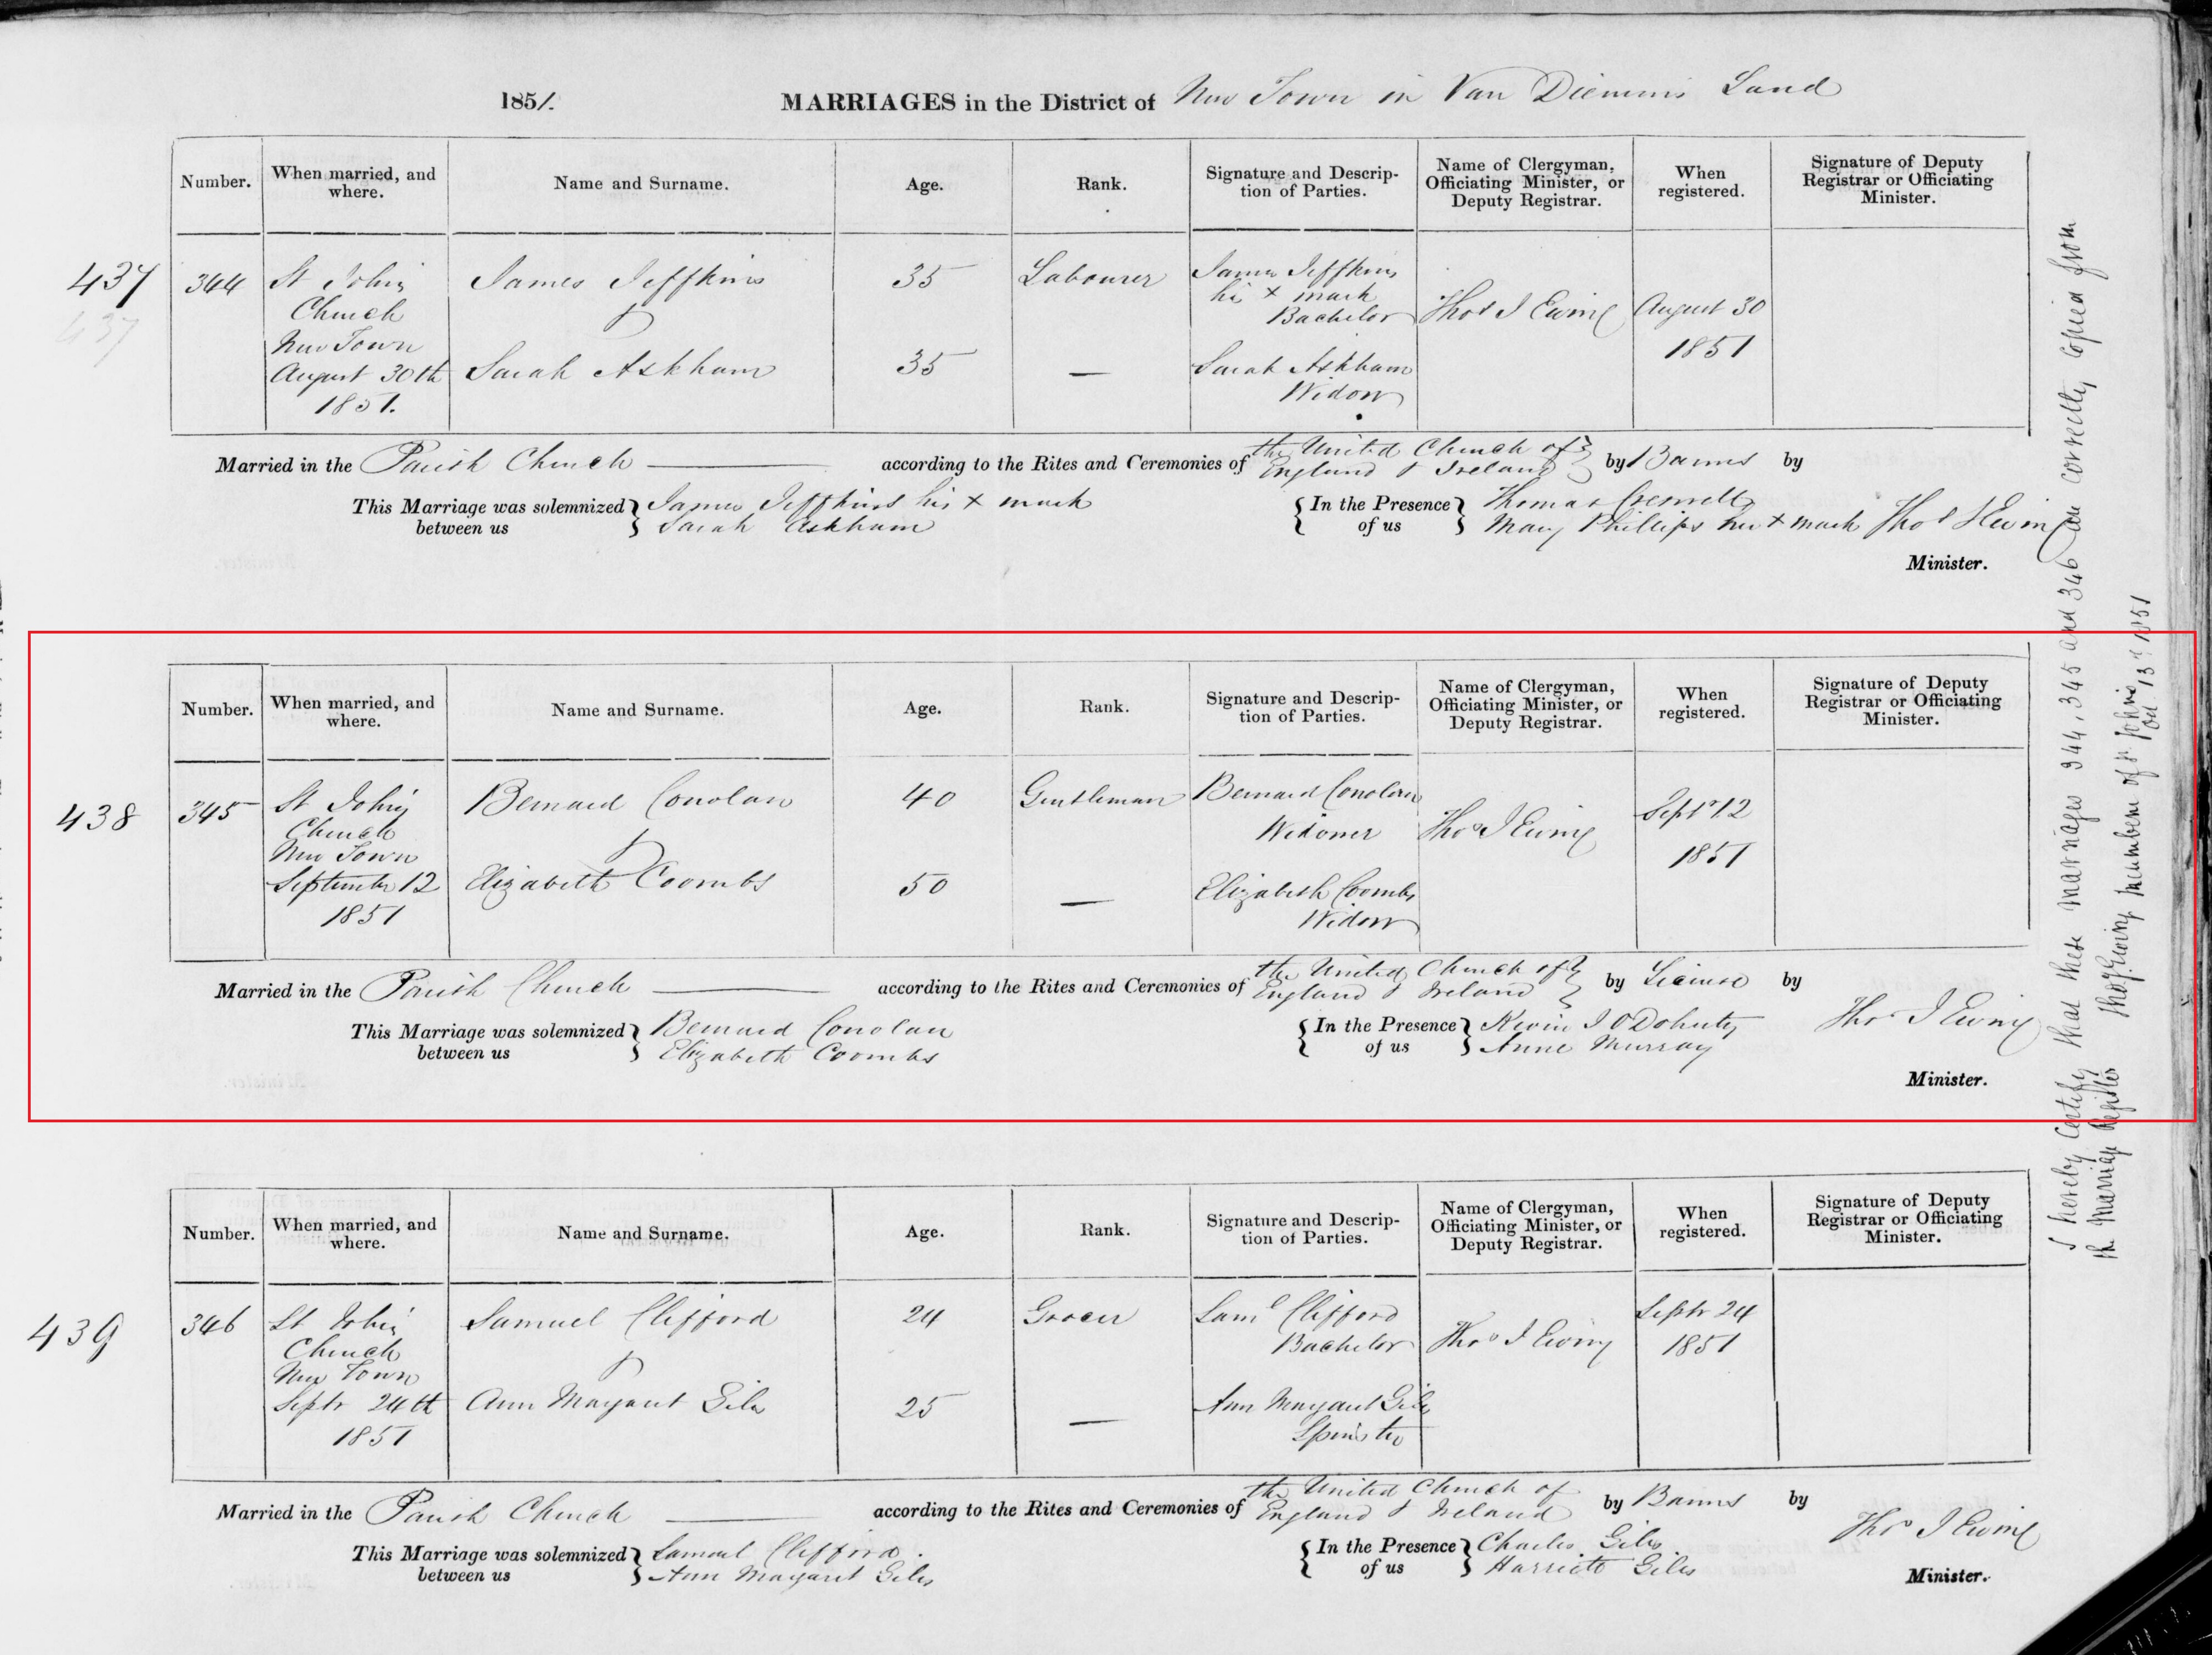 1851. MARRIAGES in the District of New Town in Van Diemens Land
Number. When married, and where. Name and Surname. Age. Rank. Signature and Description of Parties. Name of Clergyman, Officiating Minister, or Deputy Registrar. When registered. Signature of Deputy Registrar or Officiating Minister.
437
437
344
St Johns
Church
New Town
August 30th
1851.
James Jeffkins
&
Sarah Askham
35
35
Labourer
—
James Jeffkins
his x mark
Bachelor
Sarah Askham
Widow
Thos J Ewing
August 30
1851
Married in the Parish Church according to the Rites and Ceremonies of the United Church of England & Ireland by Banns by
This Marriage was solemnized between us
James Jeffkins his x mark
Sarah Askham
In the Presence of us
Thomas
Mary Phillips her x mark
Thos J Ewing
Minister.
Number. When married, and where. Name and Surname. Age. Rank. Signature and Description of Parties. Name of Clergyman, Officiating Minister, or Deputy Registrar. When registered. Signature of Deputy Registrar or Officiating Minister.
438
345
St Johns
Church
New Town
September 12
1851
Bernard Conolan
&
Elizabeth Coombs
40
50
Gentleman
—
Bernard Conolan
Widower
Elizabeth Coombs
Widow
Thos J Ewing
Septr 12
1851
Married in the Parish Church according to the Rites and Ceremonies of the United Church of England & Ireland by License by
This Marriage was solemnized between us
Bernard Conolan
Elizabeth Coombs
In the Presence of us
Kevin I O'Doherty
Anne Murray
Thos J Ewing
Minister.
Number. When married, and where. Name and Surname. Age. Rank. Signature and Description of Parties. Name of Clergyman, Officiating Minister, or Deputy Registrar. When registered. Signature of Deputy Registrar or Officiating Minister.
439
346
St Johns
Church
New Town
Septr 24th
1851
Samuel Clifford
&
Ann Margaret Giles
24
25
Grocer
—
Saml Clifford
Bachelor
Ann Margaret Giles
Spinster
Thos J Ewing
Septr 24
1851
Married in the Parish Church according to the Rites and Ceremonies of the United Church of England & Ireland by Banns by
This Marriage was solemnized between us
Samuel Clifford
Ann Margaret Giles
In the Presence of us
Charles Giles
Harriette Giles
Thos J Ewing
Minister.
I hereby Certify that these marriages 344, 345 and 346 are correctly copied from
the Marriage Register Thos J Ewing Incumbent of St Johns
Oct 13th 1851